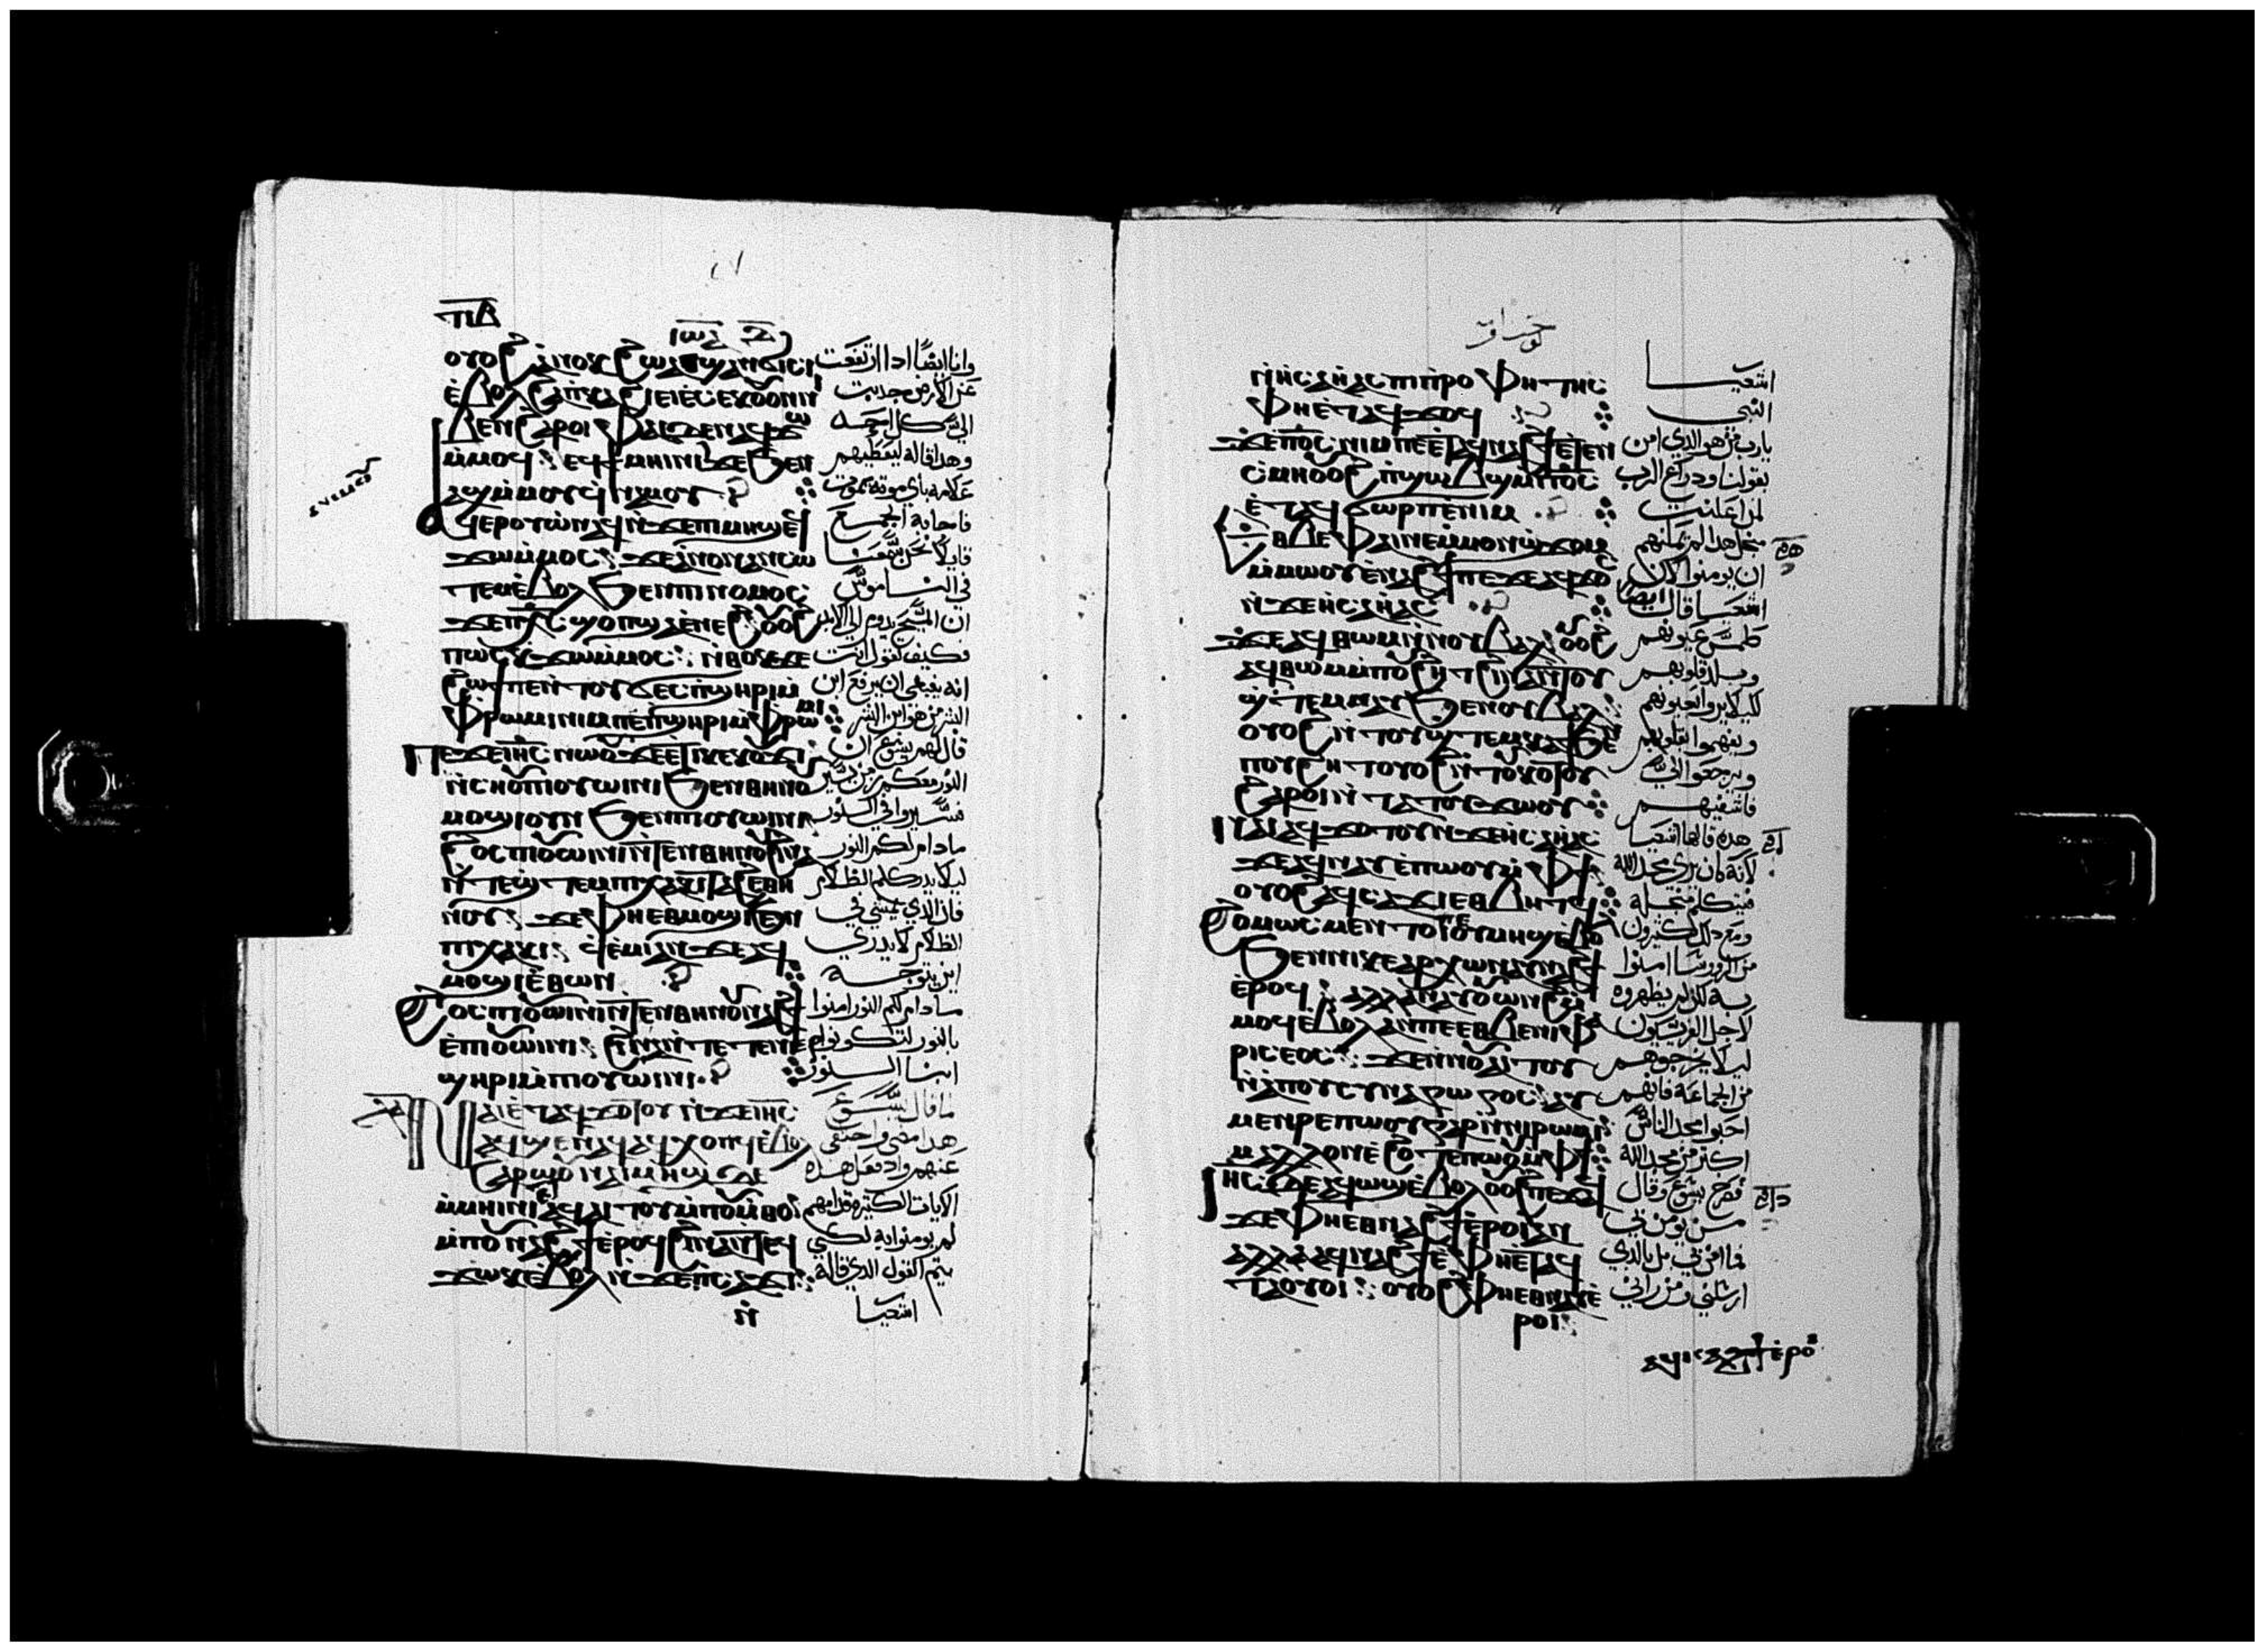 ⲡⲇ
ⲓⲱⲁ
ⲟⲩⲟϩ ⲁⲛⲟⲕ ϩⲱ ⲁⲓϣⲁⲛϭⲓⲥⲓ
ⲉⲃⲟⲗ ϩⲁ ⲡⲕⲁϩⲓ ⲉⲓⲉⲥⲉⲕ ⲟⲩⲟⲛ ⲛⲓ
ⲃⲉⲛ ϩⲁⲣⲟⲓ ⲫⲁⲓ ⲇⲉ ⲛⲁϥϫⲱ
ⲙⲙⲟϥ ⲉϥϯⲙⲏⲓⲛⲓ ϫⲉ ϧⲉⲛ
ⲁϣ ⲙⲙⲟⲩ ϥⲛⲁⲙⲟⲩ
ⲁϥⲉⲣⲟⲩⲱ ⲛⲁϥ ⲛϫⲉ ⲡⲓⲙⲏϣ ⲉϥ
ϫⲱ ⲙⲙⲟⲥ ϫⲉ ⲁⲛⲟⲛ ⲁⲛⲥⲱ
ⲧⲉⲙ ⲉⲃⲟⲗ ϧⲉⲛ ⲡⲓⲛⲟⲙⲟⲥ
ϫⲉ ⲡⲭⲥ ϣⲟⲡ ϣⲁ ⲉⲛⲉϩ ⲟⲩⲟϩ
ⲡⲱⲥ ⲕϫⲱ ⲙⲙⲟⲥ ⲛⲑⲟⲕ ϫⲉ
ϩⲱϯ ⲡⲉ ⲛⲧⲟⲩϭⲉⲥ ⲡϣⲏⲣⲓ ⲙ
ⲫⲣⲱⲙⲓ ⲛⲓⲙ ⲡⲉ ⲡϣⲏⲣⲓ ⲙⲫⲣⲱⲙⲓ
ⲡⲉϫⲉ ⲓⲏⲥ ⲛⲱⲟⲩ ϫⲉ ⲉⲧⲓ ⲕⲉⲕⲟⲩϫⲓ
ⲛⲥⲏⲟⲩ ⲡⲓⲟⲩⲱⲓⲛⲓ ϧⲉⲛ ⲑⲏⲛⲟⲩ
ⲙⲟϣⲓ ⲟⲩⲛ ϧⲉⲛ ⲡⲓⲟⲩⲱⲓⲛⲓ
ϩⲟⲥ ⲡⲓⲟⲩⲱⲓⲛⲓ ⲛⲧⲉⲛ ⲑⲏⲛⲟⲩ ϩⲓⲛⲁ
ⲛⲧⲉϣⲧⲉⲙ ⲡⲓⲭⲁⲕⲓ ⲧⲁϩⲉ ⲑⲏ
ⲛⲟⲩ ϫⲉ ⲫⲏ ⲉⲑⲙⲟϣⲓ ϧⲉⲛ
ⲡⲓⲭⲁⲕⲓ ϥⲉⲙⲓ ⲁⲛ ϫⲉ ⲁϥ
ⲙⲟϣⲓ ⲉⲑⲱⲛ
ϩⲟⲥ ⲡⲓⲟⲩⲱⲓⲛⲓ ⲛⲧⲉⲛ ⲑⲏⲛⲟⲩ ⲛⲁϩϯ
ⲉⲡⲓⲟⲩⲱⲓⲛⲓ ϩⲓⲛⲁ ⲛⲧⲉⲧⲉⲛⲉⲣ
ϣⲏⲣⲓ ⲙⲡⲓⲟⲩⲱⲓⲛⲓ
ⲛⲁⲓ ⲉⲧⲁϥϫⲟⲧⲟⲩ ⲛϫⲉ ⲓⲏⲥ
ⲁϥϣⲉ ⲛⲁϥ ⲁϥⲭⲟⲡϥ ⲉⲃⲟⲗ
ϩⲁⲣⲱⲟⲩ ⲛⲁⲓ ⲙⲏϣ ⲇⲉ
ⲙⲙⲏⲓⲛⲓ ⲉⲁϥⲁⲓⲧⲟⲩ ⲙⲡⲟⲩⲙⲑⲟ
ⲙⲡⲟⲩⲛⲁϩϯ ⲉⲣⲟϥ ϩⲓⲛⲁ ⲛⲧⲉϥ
ϫⲱⲕ ⲉⲃⲟⲗ ⲛϫⲉ ⲡⲥⲁϫⲓ
ⲛ
وانا ايضًا ادا ارتفعت
عن الارض جدبت
الي كل احد
وهدا قاله ليعطيهم
علامه باي موته يموت
فاجابه الجمع
قايلا نحن سمعنا
في الناموس
ان المسيح يدوم الي الابد
فكيف تقول انت
انه ينبغي ان يرفع ابن
البشر من هو ابن البشر
قال لهم يسوع ان
النور معكم زمن يسير
فسيروا في النور
مادام لكم النور
ليلا يدرككم الظلام
فان الذي يمشي في
الظلام لا يدري
اين يتوجه
مادام لكم النور امنوا
بالنور لتكونوا
ابنا النور
ما قال يسوع
هدا مضي واختفي
عنهم واد فعل هذه
الايات الكثيره قدامهم
لم يومنوا به لكي
يتم القول الدي قاله
اشعيا
ⲛⲏⲥⲁⲏⲁⲥ ⲡⲓⲡⲣⲟⲫⲏⲧⲏⲥ
ⲫⲏ ⲉⲧⲁϥϫⲟϥ
ϫⲉ ⲡⲟⲥ ⲛⲓⲙ ⲡⲉ ⲉⲧⲁϥⲛⲁϩϯ ⲉⲧⲉⲛ
ⲥⲙⲏ ⲟⲩⲟϩ ⲡϣⲱⲃϣ ⲙⲡⲟⲥ
ⲉⲧⲁϥϭⲱⲣⲡ ⲉⲛⲓⲙ
ⲉⲑⲃⲉ ⲫⲁⲓ ⲛⲉ ⲙⲙⲟⲛ ϣϫⲟⲙ
ⲙⲙⲱⲟⲩ ⲉⲛⲁϩϯ ⲡⲉ ϫⲉ ⲁϥϫⲟⲥ
ⲛϫⲉ ⲏⲥⲁⲏⲁⲥ
ϫⲉ ⲁϥⲑⲱⲙ ⲛⲛⲟⲩⲃⲁⲗ ⲟⲩⲟϩ
ⲁϥⲑⲱⲙ ⲙⲡⲟⲩϩⲏⲧ ϩⲓⲛⲁ ⲛⲧⲟⲩ
ϣⲧⲉⲙⲛⲁⲩ ϧⲉⲛ ⲛⲟⲩⲃⲁⲗ
ⲟⲩⲟϩ ⲛⲧⲟⲩϣⲧⲉⲙⲕⲁϯ ϧⲉⲛ
ⲡⲟⲩϩⲏⲧ ⲟⲩⲟϩ ⲛⲧⲟⲩⲕⲟⲧⲟⲩ
ϩⲁⲣⲟⲓ ⲛⲧⲁⲧⲟⲩϫⲱⲟⲩ
ⲛⲁⲓ ⲁϥϫⲟⲧⲟⲩ ⲛϫⲉ ⲏⲥⲁⲏⲁⲥ
ϫⲉ ⲁϥⲛⲁⲩ ⲉⲡⲱⲟⲩ ⲙⲫϯ
ⲟⲩⲟϩ ⲁϥⲥⲁϫⲓ ⲉⲑⲃⲏⲧϥ
ϩⲟⲙⲱⲥ ⲙⲉⲛⲧⲟⲓ ⲟⲩⲙⲏϣ ⲉⲃⲟⲗ
ϧⲉⲛ ⲛⲓⲕⲉⲁⲣⲭⲱⲛ ⲁⲩⲛⲁϩϯ
ⲉⲣⲟϥ ⲁⲗⲗⲁ ⲛⲁⲩⲟⲩⲱⲛϩ ⲙ
ⲙⲟϥ ⲉⲃⲟⲗ ⲁⲛ ⲡⲉ ⲉⲑⲃⲉ ⲛⲓⲫⲁ
ⲣⲓⲥⲉⲟⲥ ϫⲉ ⲛⲛⲟⲩⲁⲓⲧⲟⲩ
ⲛⲁⲡⲟⲥⲩⲛⲁⲅⲱⲅⲟⲥ ⲁⲩ
ⲙⲉⲛⲣⲉ ⲡⲱⲟⲩ ⲅⲁⲣ ⲛⲛⲓⲣⲱⲙⲓ
ⲙⲁⲗⲗⲟⲛ ⲉϩⲟⲧⲉ ⲡⲱⲟⲩ ⲙⲫϯ
ⲓⲏⲥ ⲇⲉ ⲁϥⲱϣ ⲉⲃⲟⲗ ⲟⲩⲟϩ ⲡⲉϫⲁϥ
ϫⲉ ⲫⲏ ⲉⲑⲛⲁϩϯ ⲉⲣⲟⲓ ⲁⲛ
ⲁⲗⲗⲁ ⲁϥⲛⲁϩϯ ⲉⲫⲏ ⲉⲧⲁϥ
ⲧⲁⲟⲩⲟⲓ ⲟⲩⲟϩ ⲫⲏ ⲉⲑⲛⲁⲩ ⲉ
ⲣⲟⲓ
اشعيا
النبي
يارب من هو الدي امن
بقولنا ودراع الرب
لمن اعلنت
من اجل هدا لم يمكنهم
ان يومنوا لان
اشعيا قال ايضا
طمس عيونهم
وبلد قلوبهم
ليلا يروا بعيونهم
ويفهموا بقلوبهم
ويرجعوا الي
فاشفيهم
هده قالها اشعيا
لانه كان راي مجد الله
فتكلم من اجله
ومع دلك كثيرون
من الروسا امنوا
به لكن لم يظهروه
لاجل الفريسيون
ليلا يخرجوهم
من الجماعة فانهم
احبوا مجد الناس
اكثر من مجد الله
فصرخ يسوع وقال
من يومن بي
فما امن بي بل بالدي
ارسلني ومن راني